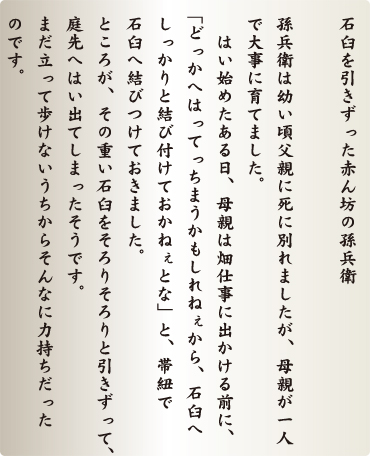 石臼を引きずった赤ん坊の孫兵衛
孫兵衛は幼い頃父親に死に別れましたが、母親が一人
で大事に育てました。
はい始めたある日、母親は畑仕事に出かける前に、
「どっかへはってっちまうかもしれねぇから、石臼へ
しっかりと結び付けておかねぇとな」と、帯紐で
石臼へ結びつけておきました。
ところが、その重い石臼をそろりそろりと引きずって、
庭先へはい出てしまったそうです。
まだ立って歩けないうちからそんなに力持ちだった
のです。